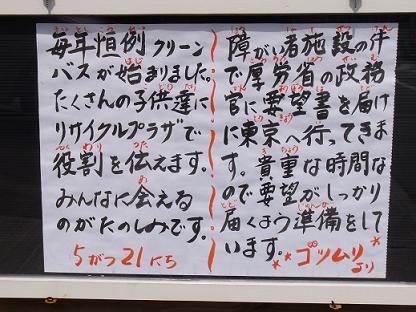 毎年恒例クリーン
バスが始まりました。
たくさんの子供達に
リサイクルプラザで
役割を伝えます。
みんなに会える
のがたのしみです。
5がつ21にち
障がい者施設の件
で厚労省の政務
官に要望書を届け
に東京へ行ってきま
す。貴重な時間な
ので要望がしっかり
届くよう準備をして
います。
ゴツムリより